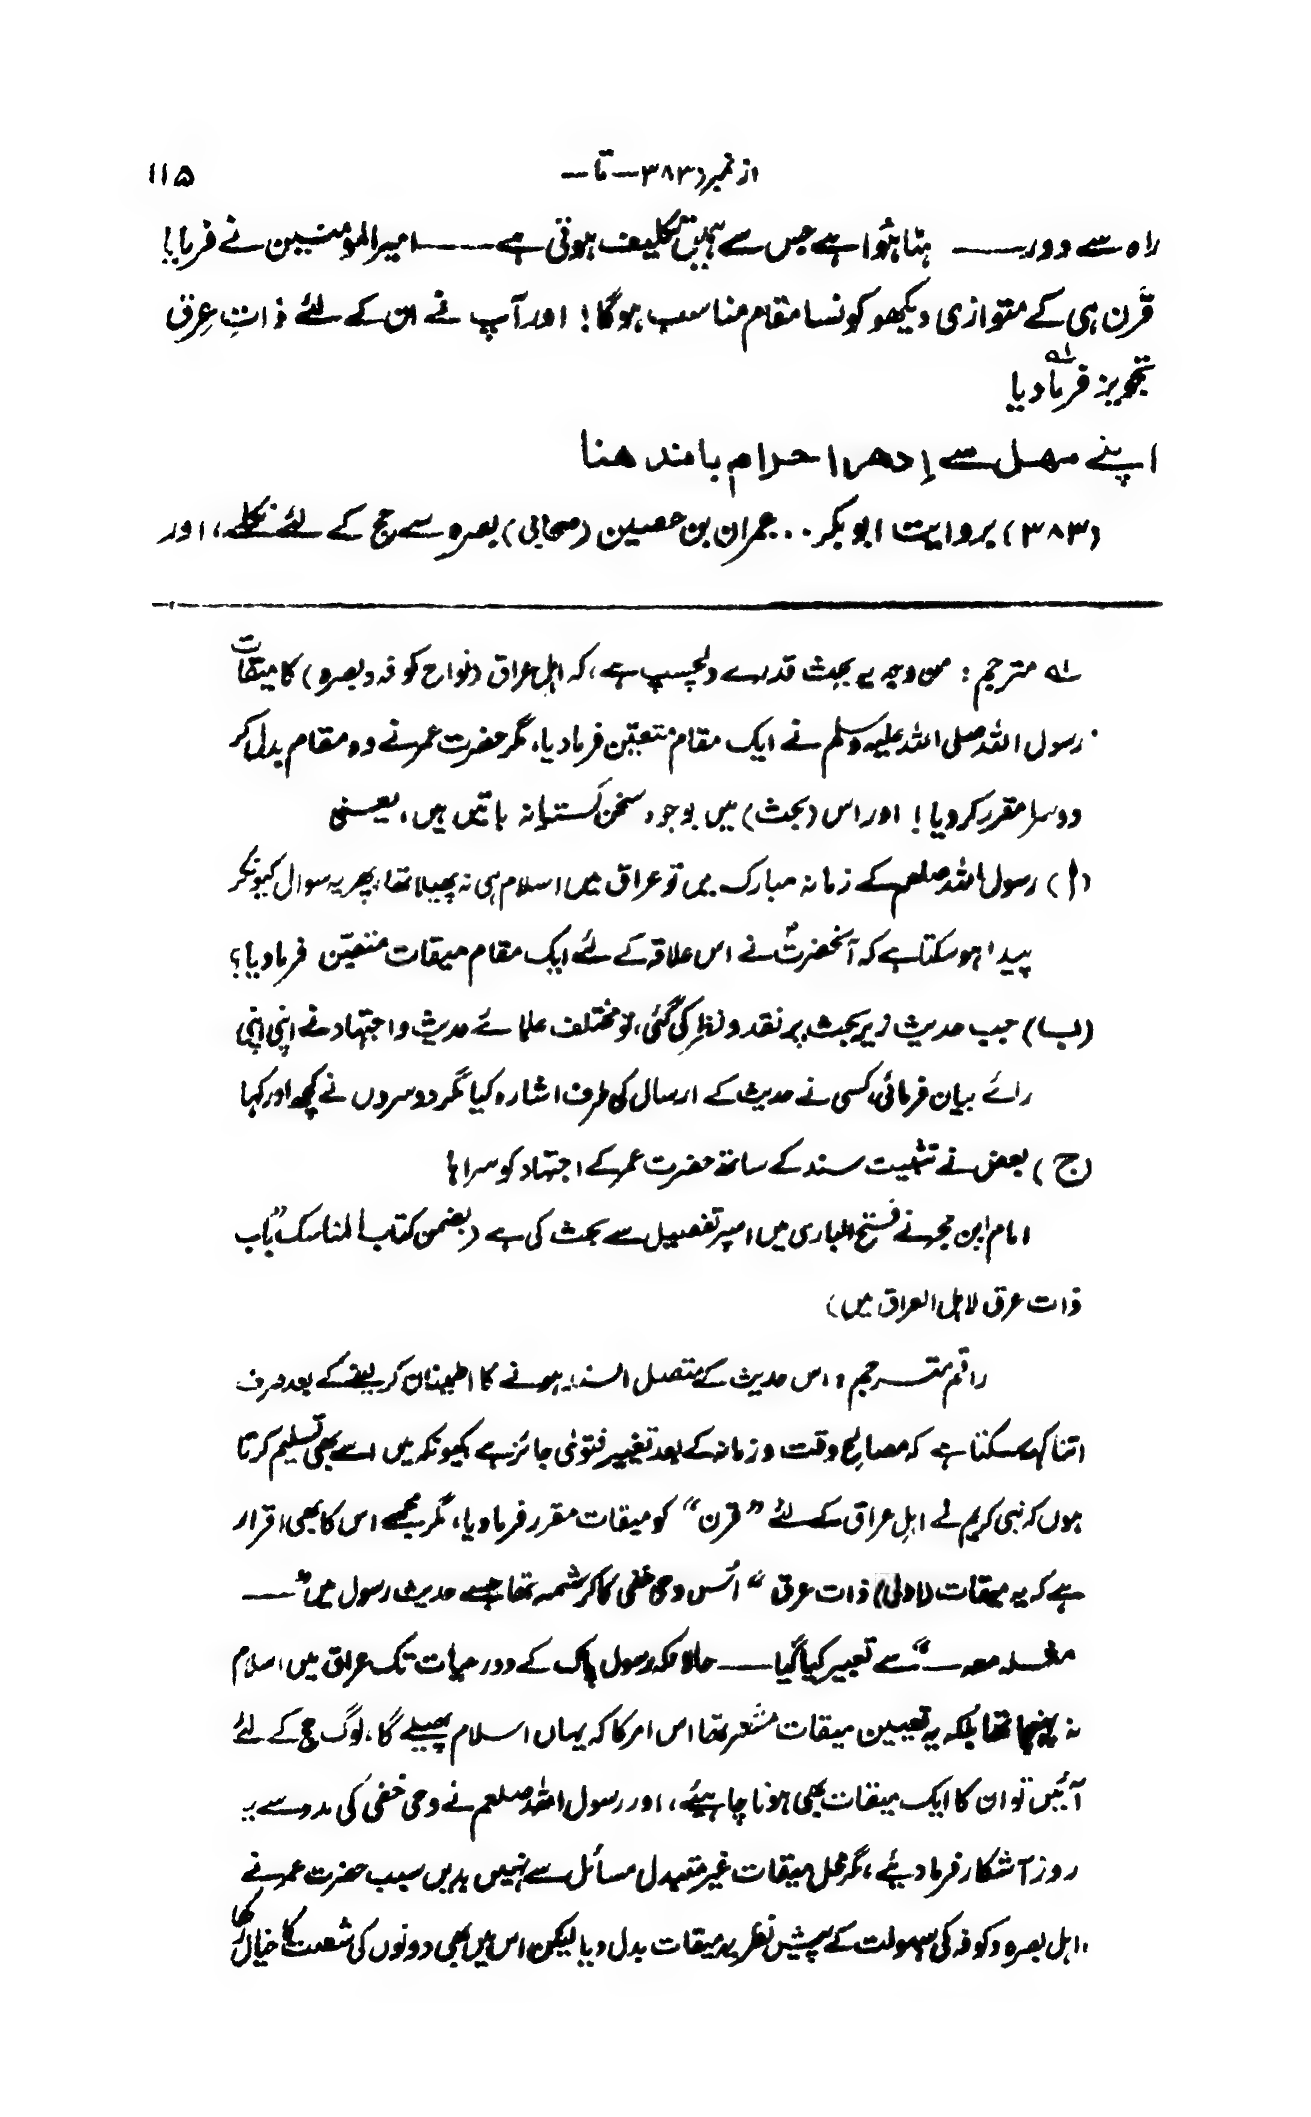 از نمبر (۳۸۳ — تا — ۱۱۵
راہ سے دور —— ہٹا ہُوا ہے جس سے ہمیں تکلیف ہوتی ہے —— امیر المؤمنین نے فرمایا!
قَرن ہی کے متوازی دیکھو کونسا مقام مناسب ہوگا! اور آپ نے ان کے لئے ذاتِ عِرق
تجویز فرمادیا ؎۱
اپنے مہل سے اِدھر احرام باندھنا
(۳۸۳) بروایت ابو بکر . . . عمران بن حصین (صحابی) بصرہ سے حج کے لئے نکلے، اور
؎۱ مترجم : من وجہ یہ بحث قدرے دلچسپ ہے، کہ اہل عراق (نواح کوفہ و بصرہ) کا میقات
رسول اللہ صلی اللہ علیہ وسلم نے ایک مقام متعیّن فرمادیا، مگر حضرت عمر نے دو مقام بدل کر
دوسرا مقرر کر دیا ! اور اس (بحث) میں بوجوہ سخن گسترانہ باتیں ہیں، یعنی
(ا) رسول اللہ صلعم کے زمانہ مبارک میں تو عراق میں اسلام ہی نہ پھیلا تھا، پھر یہ سوال کیونکر
پیدا ہو سکتا ہے کہ آنحضرتؐ نے اس علاقہ کے لئے ایک مقام میقات متعیّن فرمادیا؟
(ب) جب حدیث زیر بحث پر نقد و نظر کی گئی، تو مختلف علمائے حدیث و اجتہاد نے اپنی اپنی
رائے بیان فرمائی، کسی نے حدیث کے ارسال کی طرف اشارہ کیا مگر دوسروں نے کچھ اور کہا
(ج) بعض نے تثبیت سند کے ساتھ حضرت عمر کے اجتہاد کو سراہا
امام ابن حجر نے فتح الباری میں اسپر تفصیل سے بحث کی ہے (بضمن کتاب المناسک "باب
ذات عرق لاہل العراق میں)
راقم مترجم، اس حدیث کے متصل السند ہونے کا اطمینان کر لینے کے بعد صرف
اتنا کہہ سکتا ہے کہ مصالح وقت و زمانہ کے بعد تغییر فتویٰ جائز ہے، کیونکہ میں اسے بھی تسلیم کرتا
ہوں کہ نبی کریم نے اہلِ عراق کے لئے "قرن" کو میقات مقرر فرمادیا، مگر مجھے اس کا بھی اقرار
ہے کہ یہ میقات (اولیٰ) ذات عرق " اُس وحی خفی کا کرشمہ تھا جسے حدیث رسول میں " ——
مثلہ معہ —" سے تعبیر کیا گیا —— حالانکہ رسول پاک کے دور حیات تک عراق میں اسلام
نہ پہنچا تھا بلکہ یہ تعیین میقات مشعر تھا اس امر کا کہ یہاں اسلام پھیلے گا، لوگ حج کے لئے
آئیں تو ان کا ایک میقات بھی ہونا چاہیئے، اور رسول اللہ صلعم نے وحی خفی کی مدد سے یہ
روز آشکار فرمادیئے، مگر محل میقات غیر متبدل مسائل سے نہیں بدیں سبب حضرت عمر نے
اہل بصرہ و کوفہ کی سہولت کے پیش نظر یہ میقات بدل دیا لیکن اس میں بھی دونوں کی کا خیال رکھا